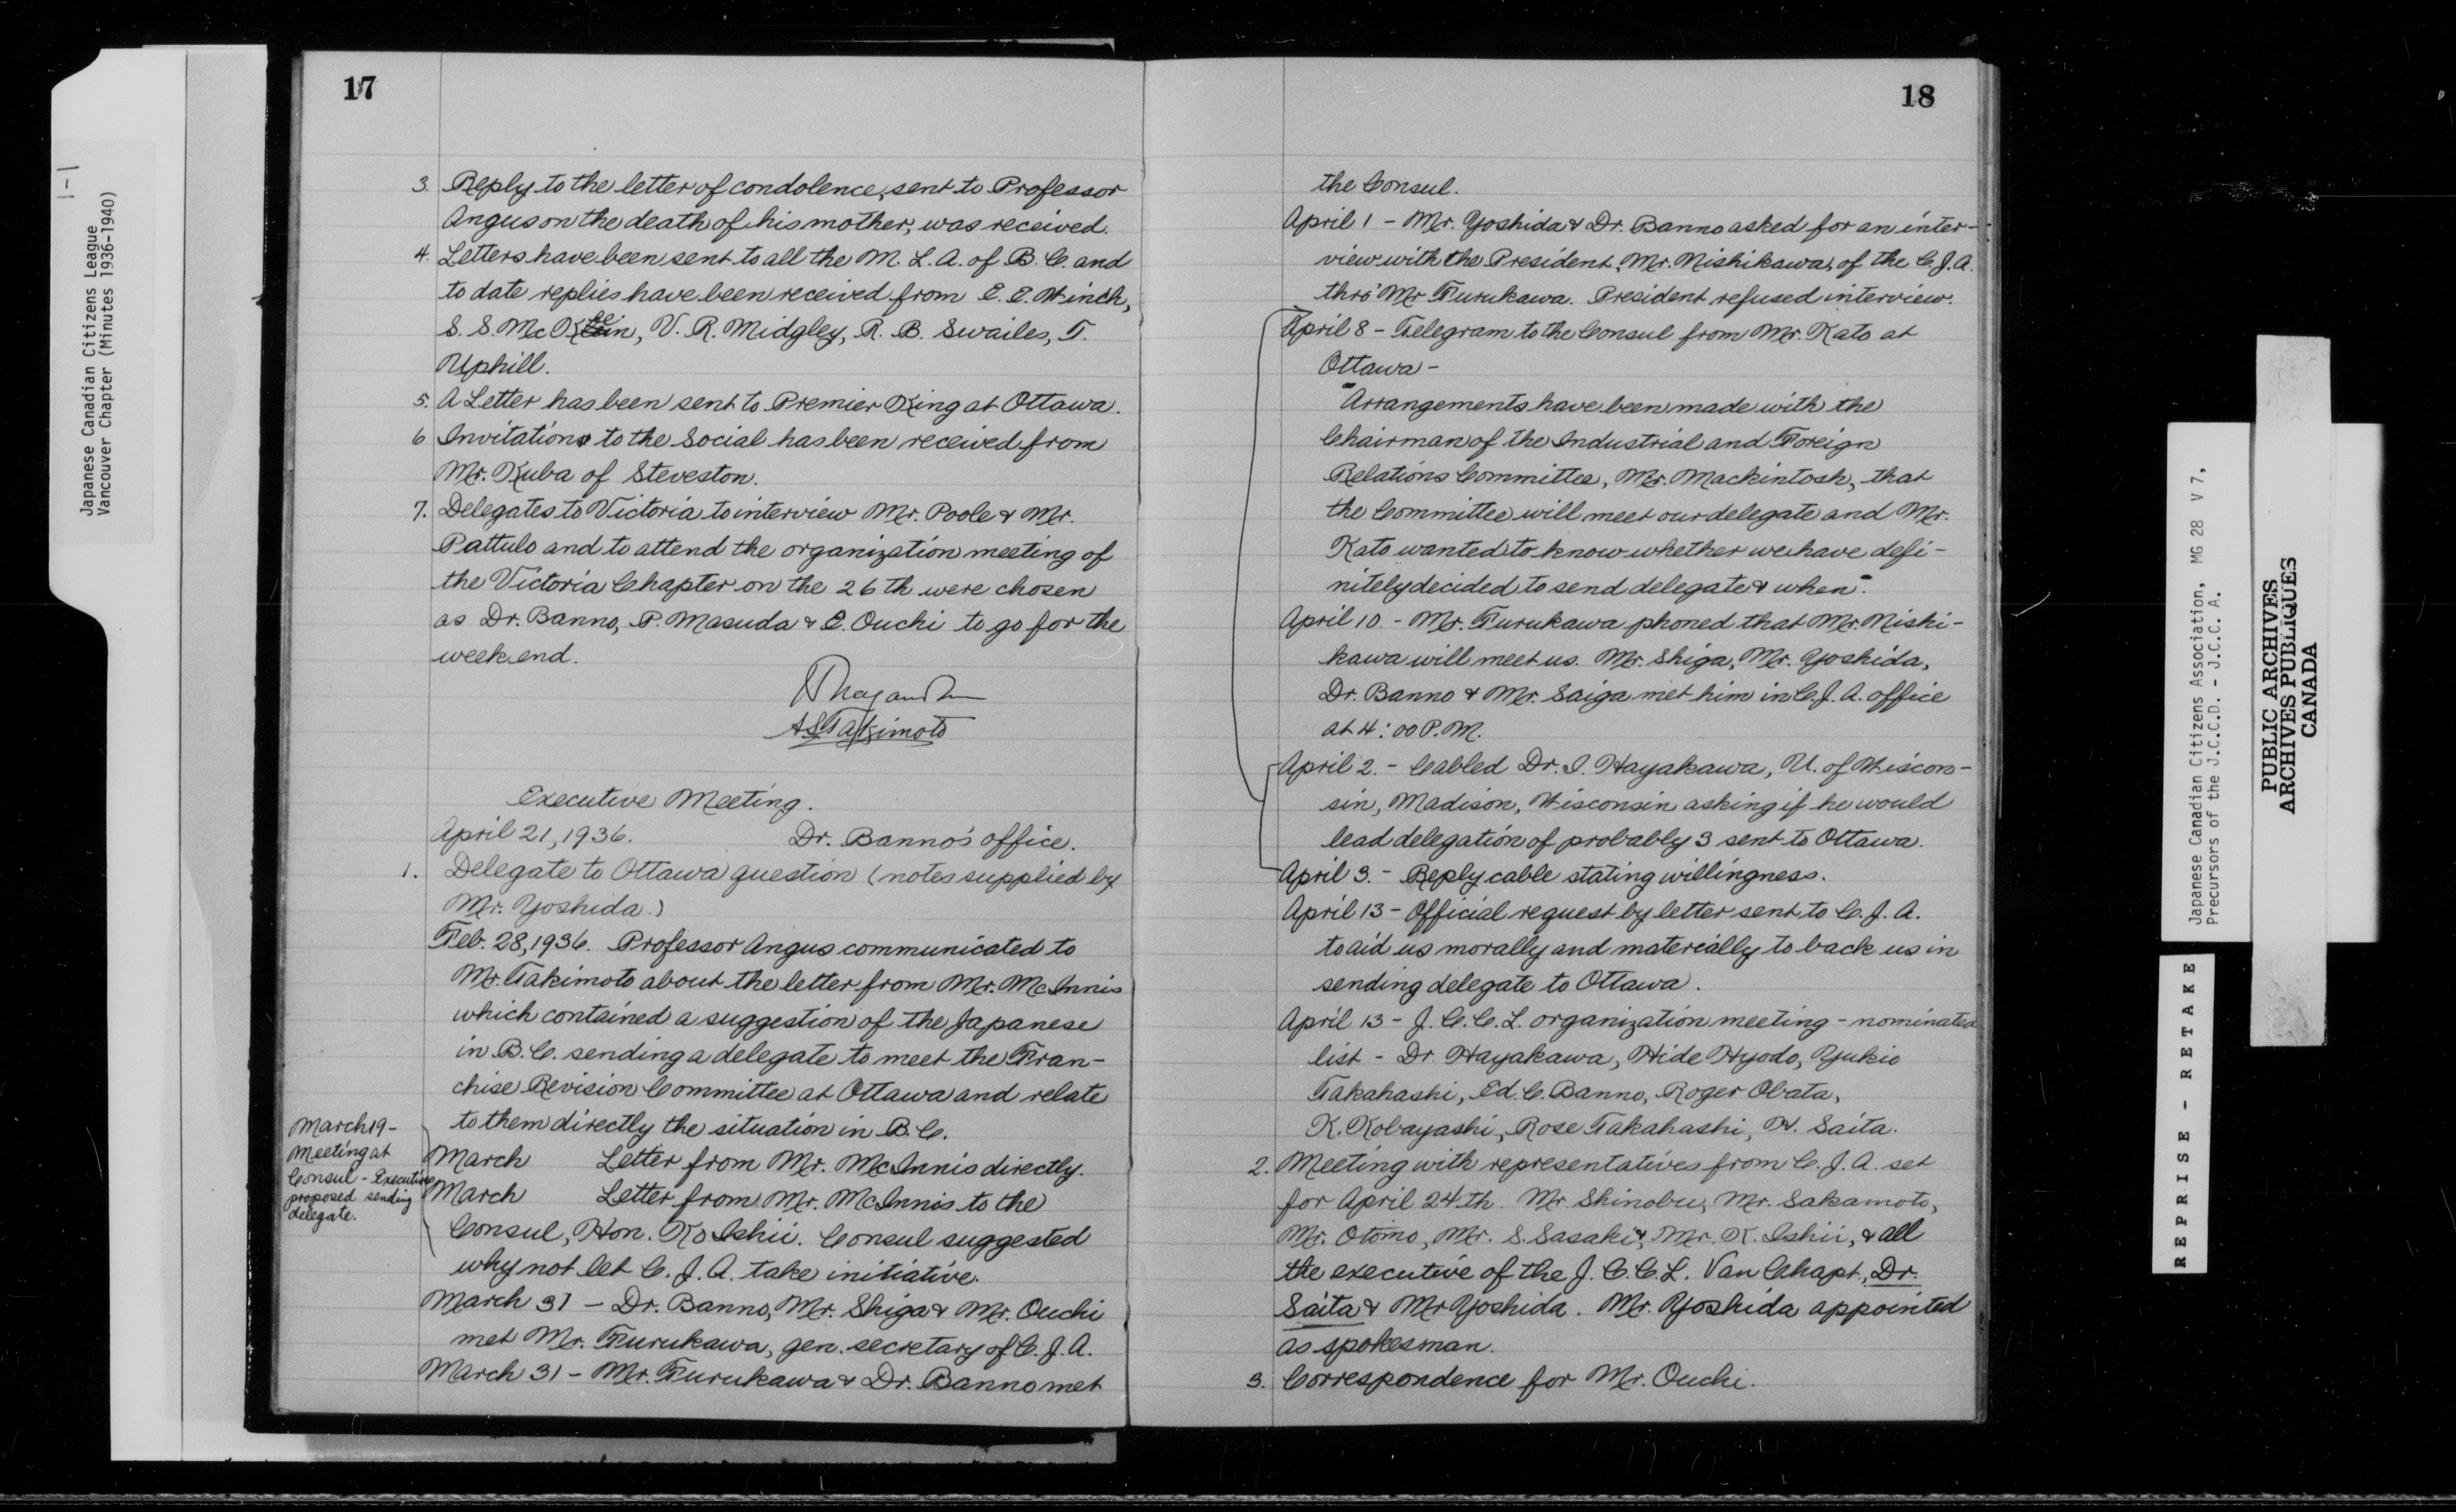 1-1
Japanese Canadian Citizens League
Vancouver Chapter (Minutes 1936-1940)
17
3. Reply to the letter of condolence, sent to Professor
Angus on the death of his mother, was received.
4. Letters have been sent to all the M. L. A. of B. C. and
to date replies have been received from E. E. Winch,
S. S. McKeen, V. R. Midgley, R. B. Swailes, T.
Uphill.
5. A Letter has been sent to Premier King at Ottawa.
6 Invitations to the Social has been received from
Mr. Kuba of Steveston.
7. Delegates to Victoria to interview Mr. Poole & Mr.
Pattulo and to attend the organization meeting of
the Victoria Chapter on the 26th were chosen
as Dr. Banno, P. Masuda & E. Ouchi to go for the
week end.
A S Takimoto
Executive Meeting.
April 21, 1936. Dr. Banno's office.
1. Delegate to Ottawa question (notes supplied by
Mr. Yoshida.)
Feb. 28, 1936. Professor Angus communicated to
Mr. Takimoto about the letter from Mr. McInnis
which contained a suggestion of the Japanese
in B.C. sending a delegate to meet the Fran-
chise Revision Committee at Ottawa and relate
to them directly the situation in B.C.
March 19 -
Meeting at
Consul - Executive
proposed sending
delegate.
March Letter from Mr. McInnis directly.
March Letter from Mr. McInnis to the
Consul, Hon. Ko Ishii. Consul suggested
why not let C. J. A. take initiative.
March 31 - Dr. Banno, Mr. Shiga & Mr. Ouchi
met Mr. Furukawa, gen. secretary of C. J. A.
March 31 - Mr. Furukawa & Dr. Banno met
18
the Consul.
April 1 - Mr. Yoshida & Dr. Banno asked for an inter-
view with the President, Mr. Nishikawa, of the C. J. A.
thro' Mr Furukawa. President refused interview.
April 8 - Telegram to the Consul from Mr. Kato at
Ottawa -
"Arrangements have been made with the
Chairman of the Industrial and Foreign
Relations Committee, Mr. Mackintosh, that
the Committee will meet our delegate and Mr.
Kato wanted to know whether we have defi-
nitely decided to send delegate & when".
April 10. - Mr. Furukawa phoned that Mr. Nishi-
kawa will meet us. Mr. Shiga, Mr. Yoshida,
Dr. Banno & Mr. Saiga met him in C. J. A. office
at 4:00 P.M.
April 2. - Cabled Dr. I. Hayakawa, U. of Wiscon-
sin, Madison, Wisconsin asking if he would
lead delegation of probably 3 sent to Ottawa.
April 3. - Reply cable stating willingness.
April 13 - Official request by letter sent to C. J. A.
to aid us morally and materially to back us in
sending delegate to Ottawa.
April 13 - J. C. C. L. organization meeting - nominated
list - Dr. Hayakawa, Hide Hyodo, Yukio
Takahashi, Ed. C. Banno, Roger Obata,
K. Kobayashi, Rose Takahashi, H. Saita.
2. Meeting with representatives from C. J. A. set
for April 24th. Mr Shinobu, Mr. Sakamoto,
Mr. Otomo, Mr. S. Sasaki &, Mr. K. Ishii, & all
the executive of the J. C. C. L. Van Chapt., Dr.
Saita & Mr Yoshida. Mr. Yoshida appointed
as spokesman.
3. Correspondence for Mr. Ouchi.
Japanese Canadian Citizens Association, MG 28 V 7,
Precursors of the J.C.C.D. - J.C.C. A.
PUBLIC ARCHIVES
ARCHIVES PUBLIQUES
CANADA
REPRISE - RETAKE